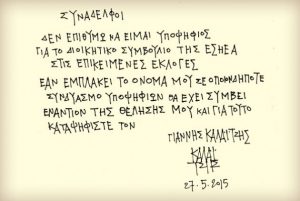 ΣΥΝΑΔΕΛΦΟΙ
ΔΕΝ ΕΠΙΘΥΜΩ ΝΑ ΕΙΜΑΙ ΥΠΟΨΗΦΙΟΣ
ΓΙΑ ΤΟ ΔΙΟΙΚΗΤΙΚΟ ΣΥΜΒΟΥΛΙΟ ΤΗΣ ΕΣΗΕΑ
ΣΤΙΣ ΕΠΙΚΕΙΜΕΝΕΣ ΕΚΛΟΓΕΣ
ΕΑΝ ΕΜΠΛΑΚΕΙ ΤΟ ΟΝΟΜΑ ΜΟΥ ΣΕ ΟΠΟΙΟΝΔΗΠΟΤΕ
ΣΥΝΔΥΑΣΜΟ ΥΠΟΨΗΦΙΩΝ ΘΑ ΕΧΕΙ ΣΥΜΒΕΙ
ΕΝΑΝΤΙΟΝ ΤΗΣ ΘΕΛΗΣΗΣ ΜΟΥ ΚΑΙ ΓΙΑ ΤΟΥΤΟ
ΚΑΤΑΨΗΦΙΣΤΕ ΤΟΝ
ΓΙΑΝΝΗΣ ΚΑΛΑΪΤΖΗΣ
27.5.2015